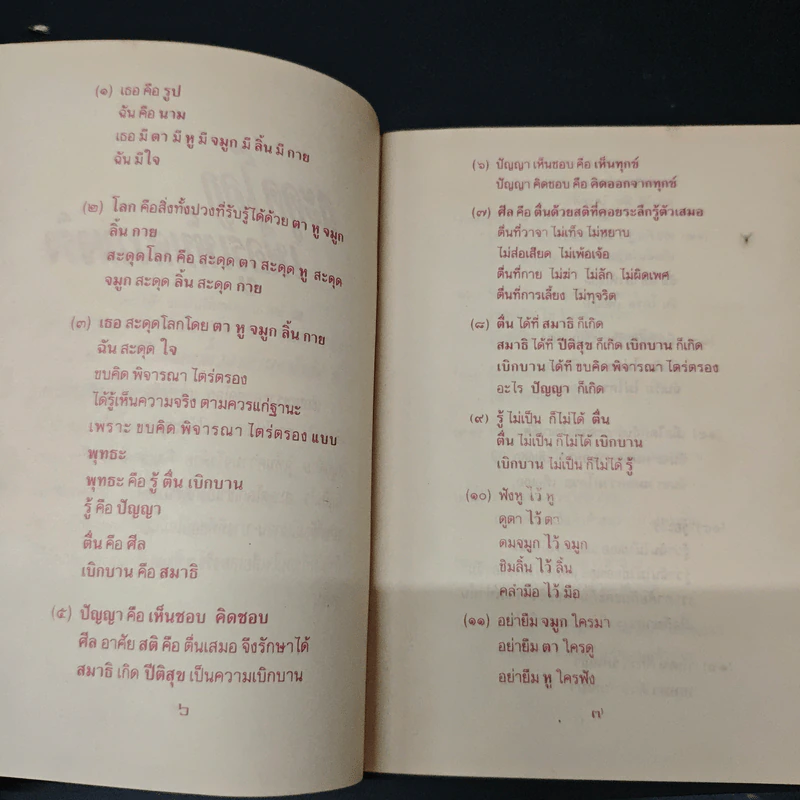 (๑) เธอ คือ รูป
ฉัน คือ นาม
เธอ มี ตา มี หู มี จมูก มี ลิ้น มี กาย
ฉัน มีใจ
(๒) โลก คือสิ่งทั้งปวงที่รับรู้ได้ด้วย ตา หู จมูก
ลิ้น กาย
สะดุดโลก คือ สะดุด ตา สะดุด หู สะดุด
จมูก สะดุด ลิ้น สะดุด กาย
(๓) เธอ สะดุดโลกโดย ตา หู จมูก ลิ้น กาย
ฉัน สะดุด ใจ
ขบคิด พิจารณา ไตร่ตรอง
ได้รู้เห็นความจริง ตามควรแก่ฐานะ
เพราะ ขบคิด พิจารณา ไตร่ตรอง แบบ
พุทธะ
พุทธะ คือ รู้ ตื่น เบิกบาน
รู้ คือ ปัญญา
ตื่น คือ ศีล
เบิกบาน คือ สมาธิ
(๕) ปัญญา คือ เห็นชอบ คิดชอบ
ศีล อาศัย สติ คือ ตื่นเสมอ จึงรักษาได้
สมาธิ เกิด ปีติสุข เป็นความเบิกบาน
๖
(๖) ปัญญา เห็นชอบ คือ เห็นทุกข์
ปัญญา คิดชอบ คือ คิดออกจากทุกข์
(๗) ศีล คือ ตื่นด้วยสติที่คอยระลึกรู้ตัวเสมอ
ตื่นที่วาจา ไม่เท็จ ไม่หยาบ
ไม่ส่อเสียด ไม่เพ้อเจ้อ
ตื่นที่กาย ไม่ฆ่า ไม่ลัก ไม่ผิดเพศ
ตื่นที่การเลี้ยง ไม่ทุจริต
(๘) ตื่น ได้ที่ สมาธิ ก็เกิด
สมาธิ ได้ที่ ปีติสุข ก็เกิด เบิกบาน ก็เกิด
เบิกบาน ได้ที่ ขบคิด พิจารณา ไตร่ตรอง
อะไร ปัญญา ก็เกิด
(๙) รู้ ไม่เป็น ก็ไม่ได้ ตื่น
ตื่น ไม่เป็น ก็ไม่ได้ เบิกบาน
เบิกบาน ไม่เป็น ก็ไม่ได้ รู้
(๑๐) ฟังหู ไว้ หู
ดูตา ไว้ ตา
ดมจมูก ไว้ จมูก
ชิมลิ้น ไว้ ลิ้น
คลำมือ ไว้ มือ
(๑๑) อย่ายืม จมูก ใครมา
อย่ายืม ตา ใครดู
อย่ายืม หู ใครฟัง
๗